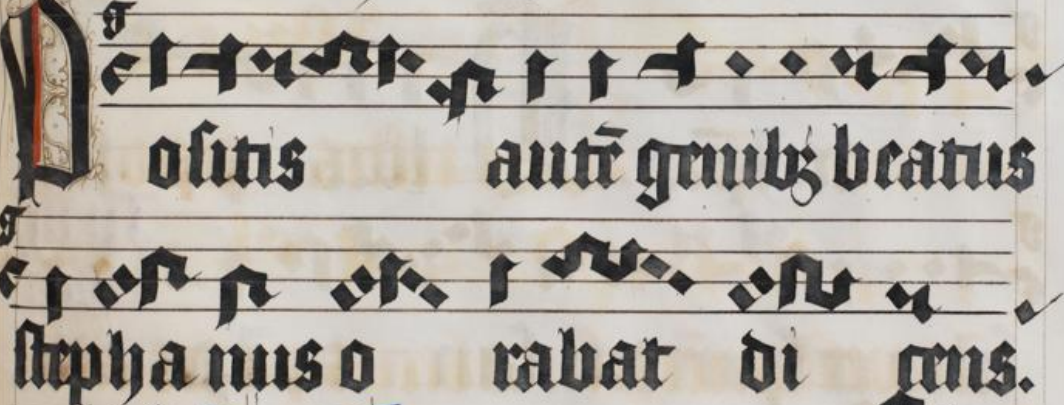 Positis autē genibꝫ beatus
stepha nus o rabat di cens.